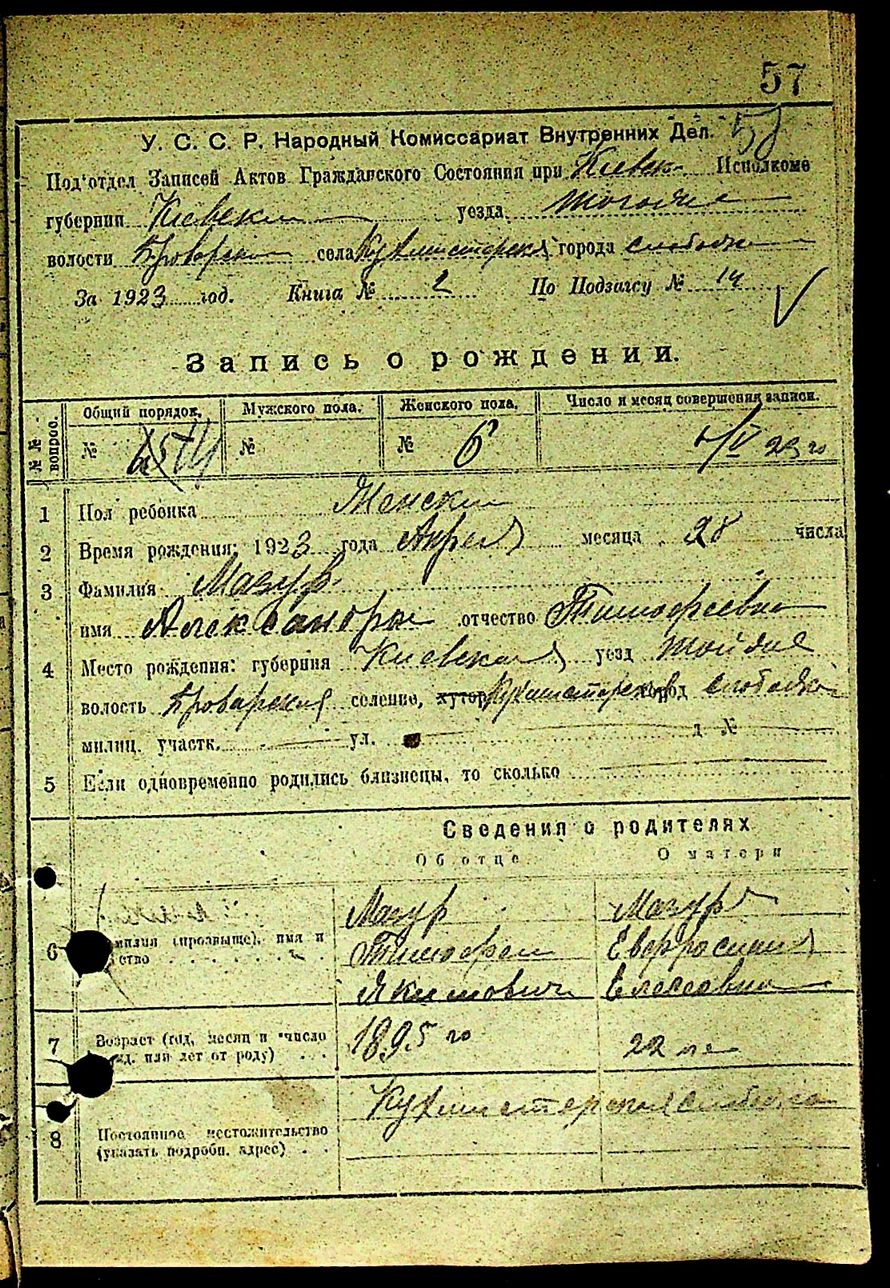 57
У. С. С. Р. Народный Комиссариат Внутренних Дел.
Под'отдел Записей Актов Гражданского Состояния при Киевск. Исполкоме
губернии Киевской уезда того же
волости Броварской села города слободка
За 1923 год. Книга № 2 По Подзагсу № 14
Запись о рождении.
№№ вопрос. Общий порядок. Мужского пола. Женского пола. Число и месяц совершения записи.
№ № № 6 23 го
1 Пол ребенка Женский
2 Время рождения: 1923 года Апреля месяца 28 числа
3 Фамилия Мазур
имя Александра отчество Тимофеевна
4 Место рождения: губерния Киевская уезд той же
волость Броварская селение, хутор, город слободка
милиц. участк. ул. д №
5 Если одновременно родились близнецы, то сколько
Сведения о родителях
Об отце О матери
Мазур Мазур
6 Фамилия (прозвище), имя и Тимофей
отчество
Якимович Елисеевна
7 Возраст (год, месяц и число 1895 го 22 ле
рожд. или лет от роду)
8 Постоянное местожительство
(указать подробн. адрес)